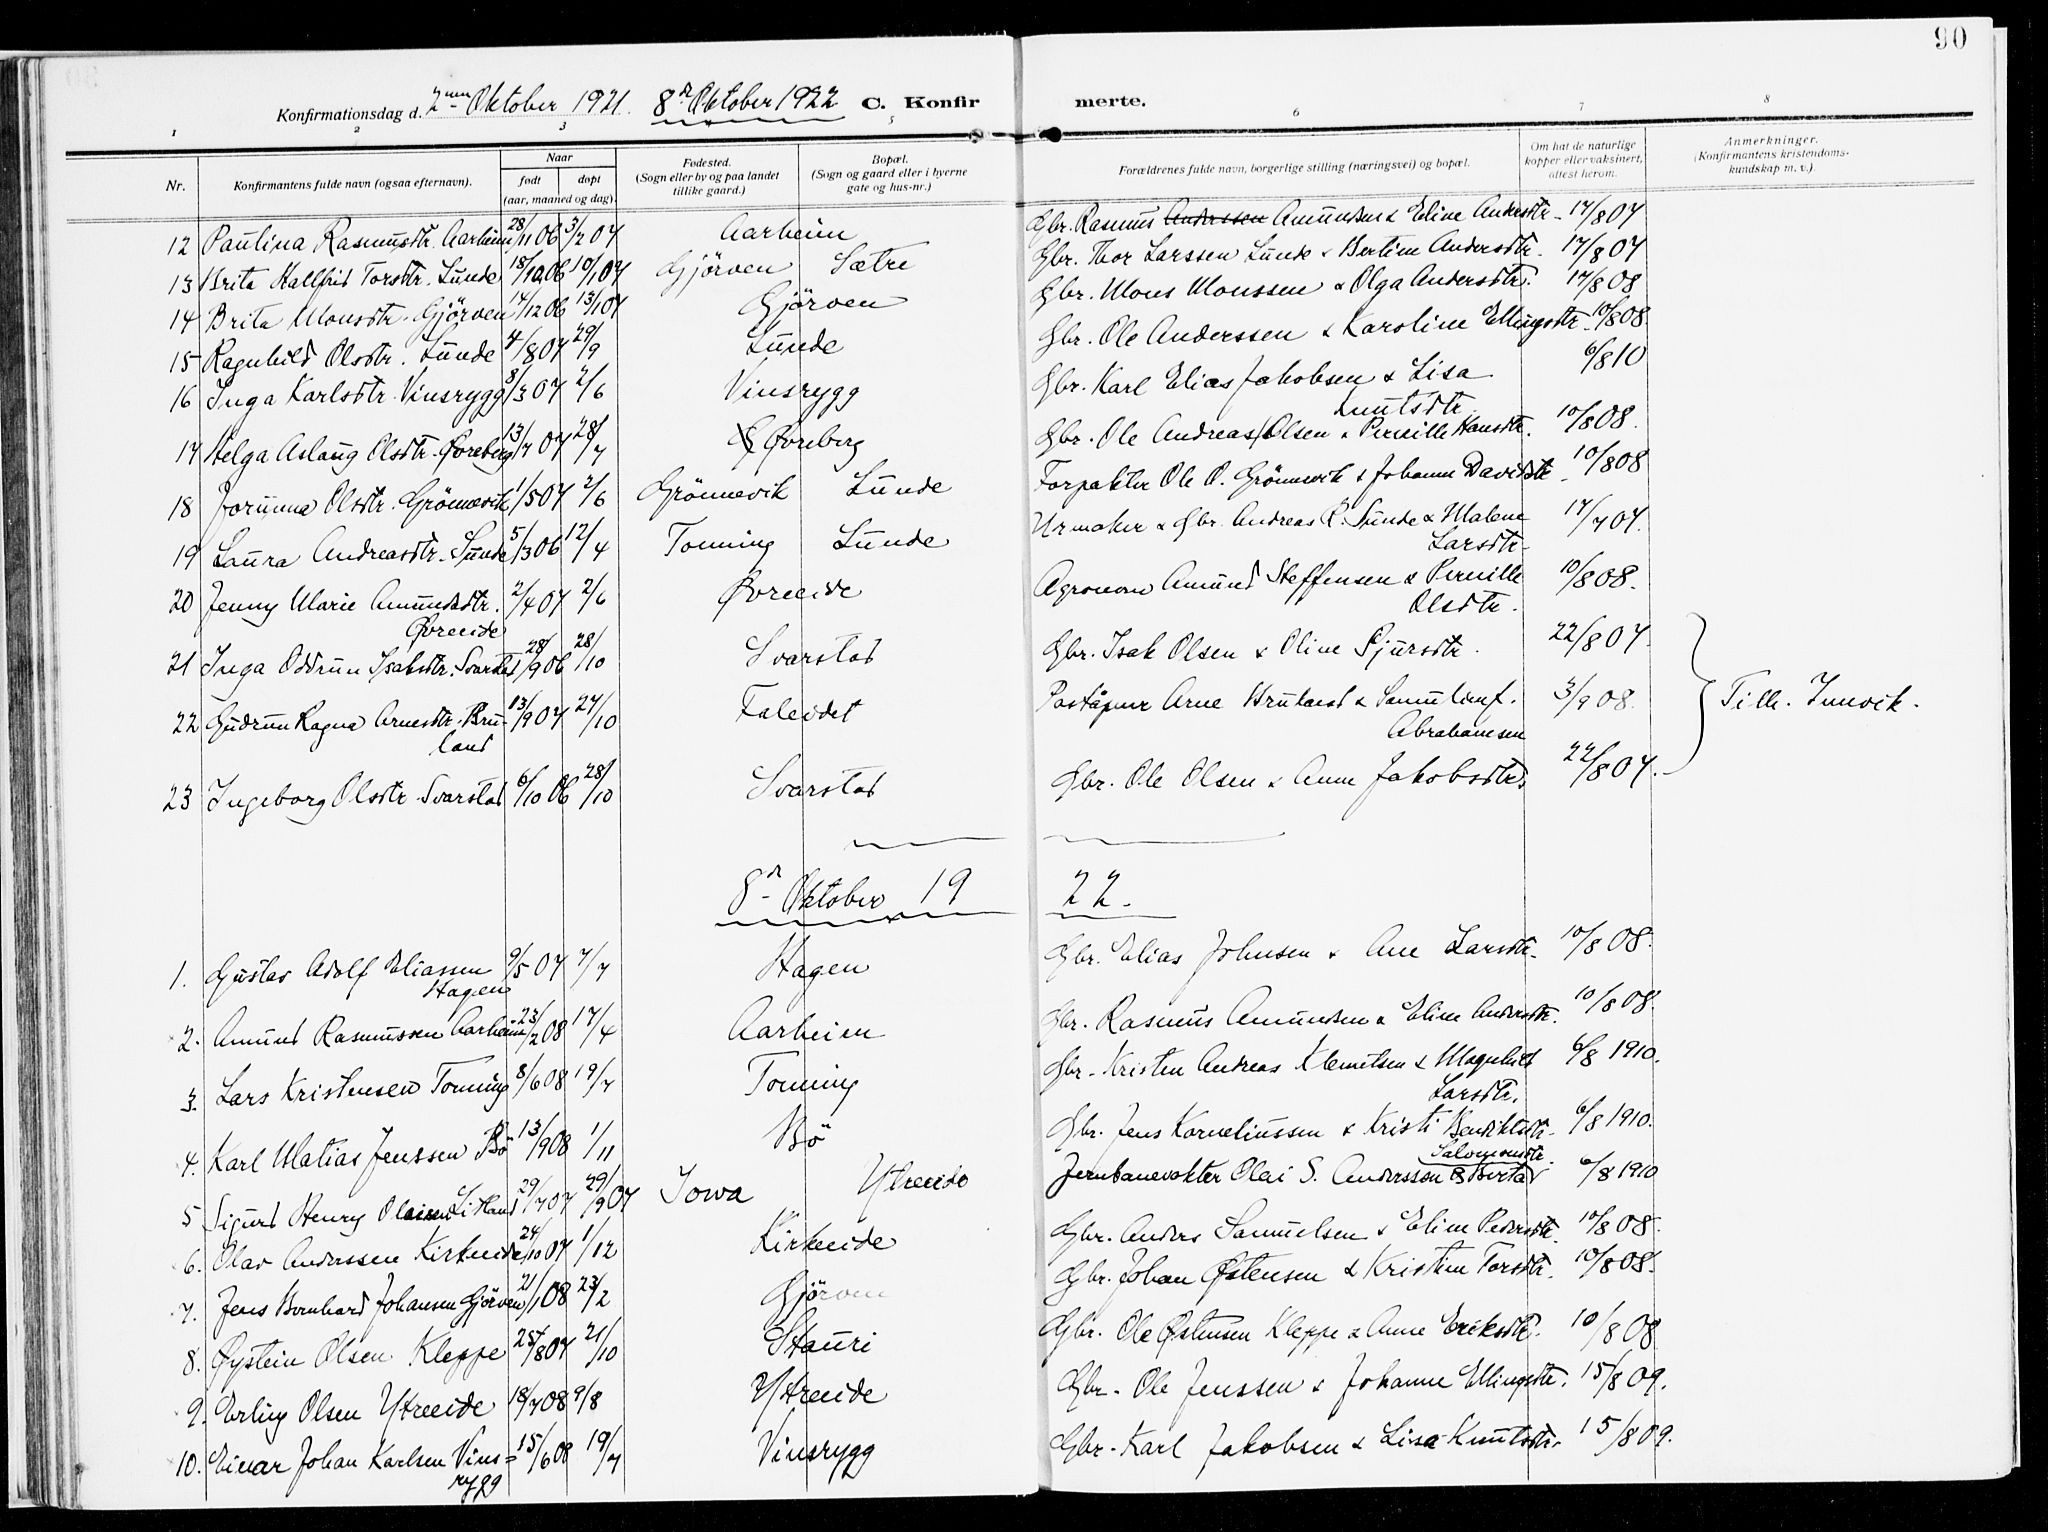 90
Konfirmationsdag d. 2nen Oktober 1921. 8de Oktober 1922 C. Konfirmerte.
1 2 3 5 6 7 8
Nr. Konfirmantens fulde navn (ogsaa efternavn). Naar født døpt (aar, maaned og dag). Fødested. (Sogn eller by og paa landet tillike gaard.) Bopæl. (Sogn og gaard eller i byerne gate og hus-nr.) Forældrenes fulde navn, borgerlige stilling (næringsvei) og bopæl. Om hat de naturlige kopper eller vaksinert, attest herom. Anmerkninger. (Konfirmantens kristendomskundskap m. v.).
12 Paulina Rasmusdtr. Aarheim 28/11 06 3/2 07 Aarheim Gbr. Rasmus Anderssen Amundsen & Eline Andersdtr. 17/8 07
13 Brita Hallfrid Torsdtr. Lunde 18/10 06 10/1 07 Gjörven Sætre Gbr. Thor Larssen Lunde & Bertine Andersdtr. 17/8 07
14 Brita Monsdtr. Gjörven 14/12 06 13/1 07 Gjörven Gbr. Mons Monssen & Olga Andersdtr. 17/8 08
15 Ragnhild Olsdtr. Lunde 4/8 07 29/9 Lunde Gbr. Ole Anderssen & Karoline Ellingsdtr. 10/8 08.
16 Inga Karlsdtr. Vinsrygg 8/3 07 2/6 Vinsrygg Gbr. Karl Elias Jakobsen & Lisa Knutsdtr. 6/8 10
17 Helga Aslaug Olsdtr. Øvreberg 13/7 07 28/7 Øvreberg Gbr. Ole Andreas Olsen & Pernille Hansdtr. 10/8 08.
18 Jorunna Olsdtr. Grönnevik 1/5 07 2/6 Grönnevik Lunde Forpakter Ole O. Grönnevik & Johanne Davidsdtr. 10/8 08
19 Laura Andreasdtr. Sunde 5/3 06 12/4 Tonning Lunde Urmaker & Gbr. Andreas R. Sunde & Malene Larsdtr. 17/7 07.
20 Jenny Marie Amundsdtr. Øvreeide 2/4 07 2/6 Øvreeide Agronom Amund Steffensen & Pernille Olsdtr. 10/8 08.
21 Inga Oddrun Isaksdtr. Svarstad 28/9 06 28/10 Svarstad Gbr. Isak Olsen & Oline Sjursdtr. 22/8 07.
22 Gudrun Ragna Arnesdtr. Bruland 13/9 07 27/10 Faleidet Poståpner Arne Bruland & Samuline f. Abrahamsen 3/9 08. Tilh. Innvik.
23 Ingeborg Olsdtr. Svarstad 6/10 06 28/10 Svarstad Gbr. Ole Olsen & Anne Jakobsdtr. 22/8 07.
8de Oktober 1922.
1. Gustav Adolf Eliassen Hagen 9/5 07 7/7 Hagen Gbr. Elias Johnsen & Ane Larsdtr. 10/8 08.
2. Amund Rasmussen Aarheim 23/2 08 17/4 Aarheim Gbr. Rasmus Amundsen & Eline Andersdtr. 10/8 08.
3. Lars Kristensen Tonning 8/6 08 19/7 Tonning Gbr. Kristen Andreas Klemetsen & Magnhild Larsdtr. 6/8 1910.
4. Karl Matias Jenssen Bö 13/9 08 1/11 Bö Gbr. Jens Korneliussen & Kristi Bendiktsdtr. 6/8 1910.
5 Sigurd Henry Olaisen 29/7 07 29/9 07 Iowa Ytreeide Jernbanevakter Olai S. Anderssen & Berta Salomonsdtr. 6/8 1910
6. Olav Anderssen Kirkeeide 24/10 07 1/12 Kirkeeide Gbr. Anders Samuelsen & Eline Pedersdtr. 10/8 08.
7. Jens Bernhard Johansen Gjörven 21/1 08 23/2 Gjörven Gbr. Johan Østensen & Kristine Torsdtr. 10/8 08.
8. Øystein Olsen Kleppe 25/8 07 21/10 Stauri Gbr. Ole Østensen Kleppe & Anne Eriksdtr. 10/8 08
9. Erling Olsen Ytreeide 18/7 08 9/8 Ytreeide Gbr. Ole Jenssen & Johanne Ellingsdtr. 15/8 09.
10. Einar Johan Karlsen Vinsrygg 15/6 08 19/7 Vinsrygg Gbr. Karl Jakobsen & Lisa Knutsdtr. 15/8 09.